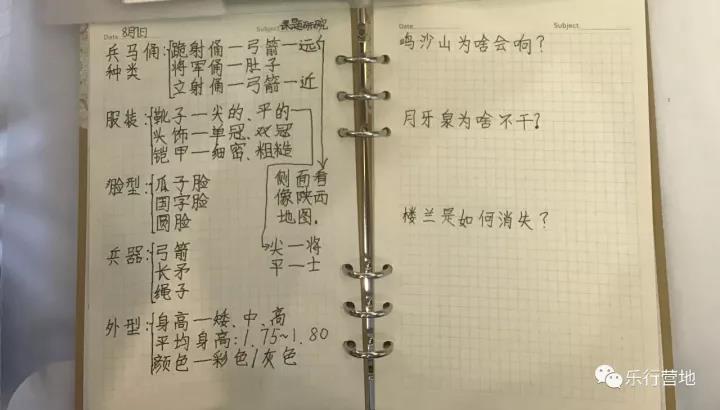 Date 8月1日
Subject 课题研究
兵马俑种类:
跪射俑—弓箭—远
将军俑—肚子
立射俑—弓箭—近
服装:
靴子—尖的、平的
头饰—单冠、双冠
铠甲—细密、粗糙
脸型:
瓜子脸
国字脸
圆脸
侧面看
像陕西
地图.
尖—将
平—士
兵器:
弓箭
长矛
绳子
外型:
身高—矮、中、高
平均身高:1.75~1.80
颜色—彩色/灰色
Date
Subject
鸣沙山为啥会响?
月牙泉为啥不干?
楼兰是如何消失?
乐行营地